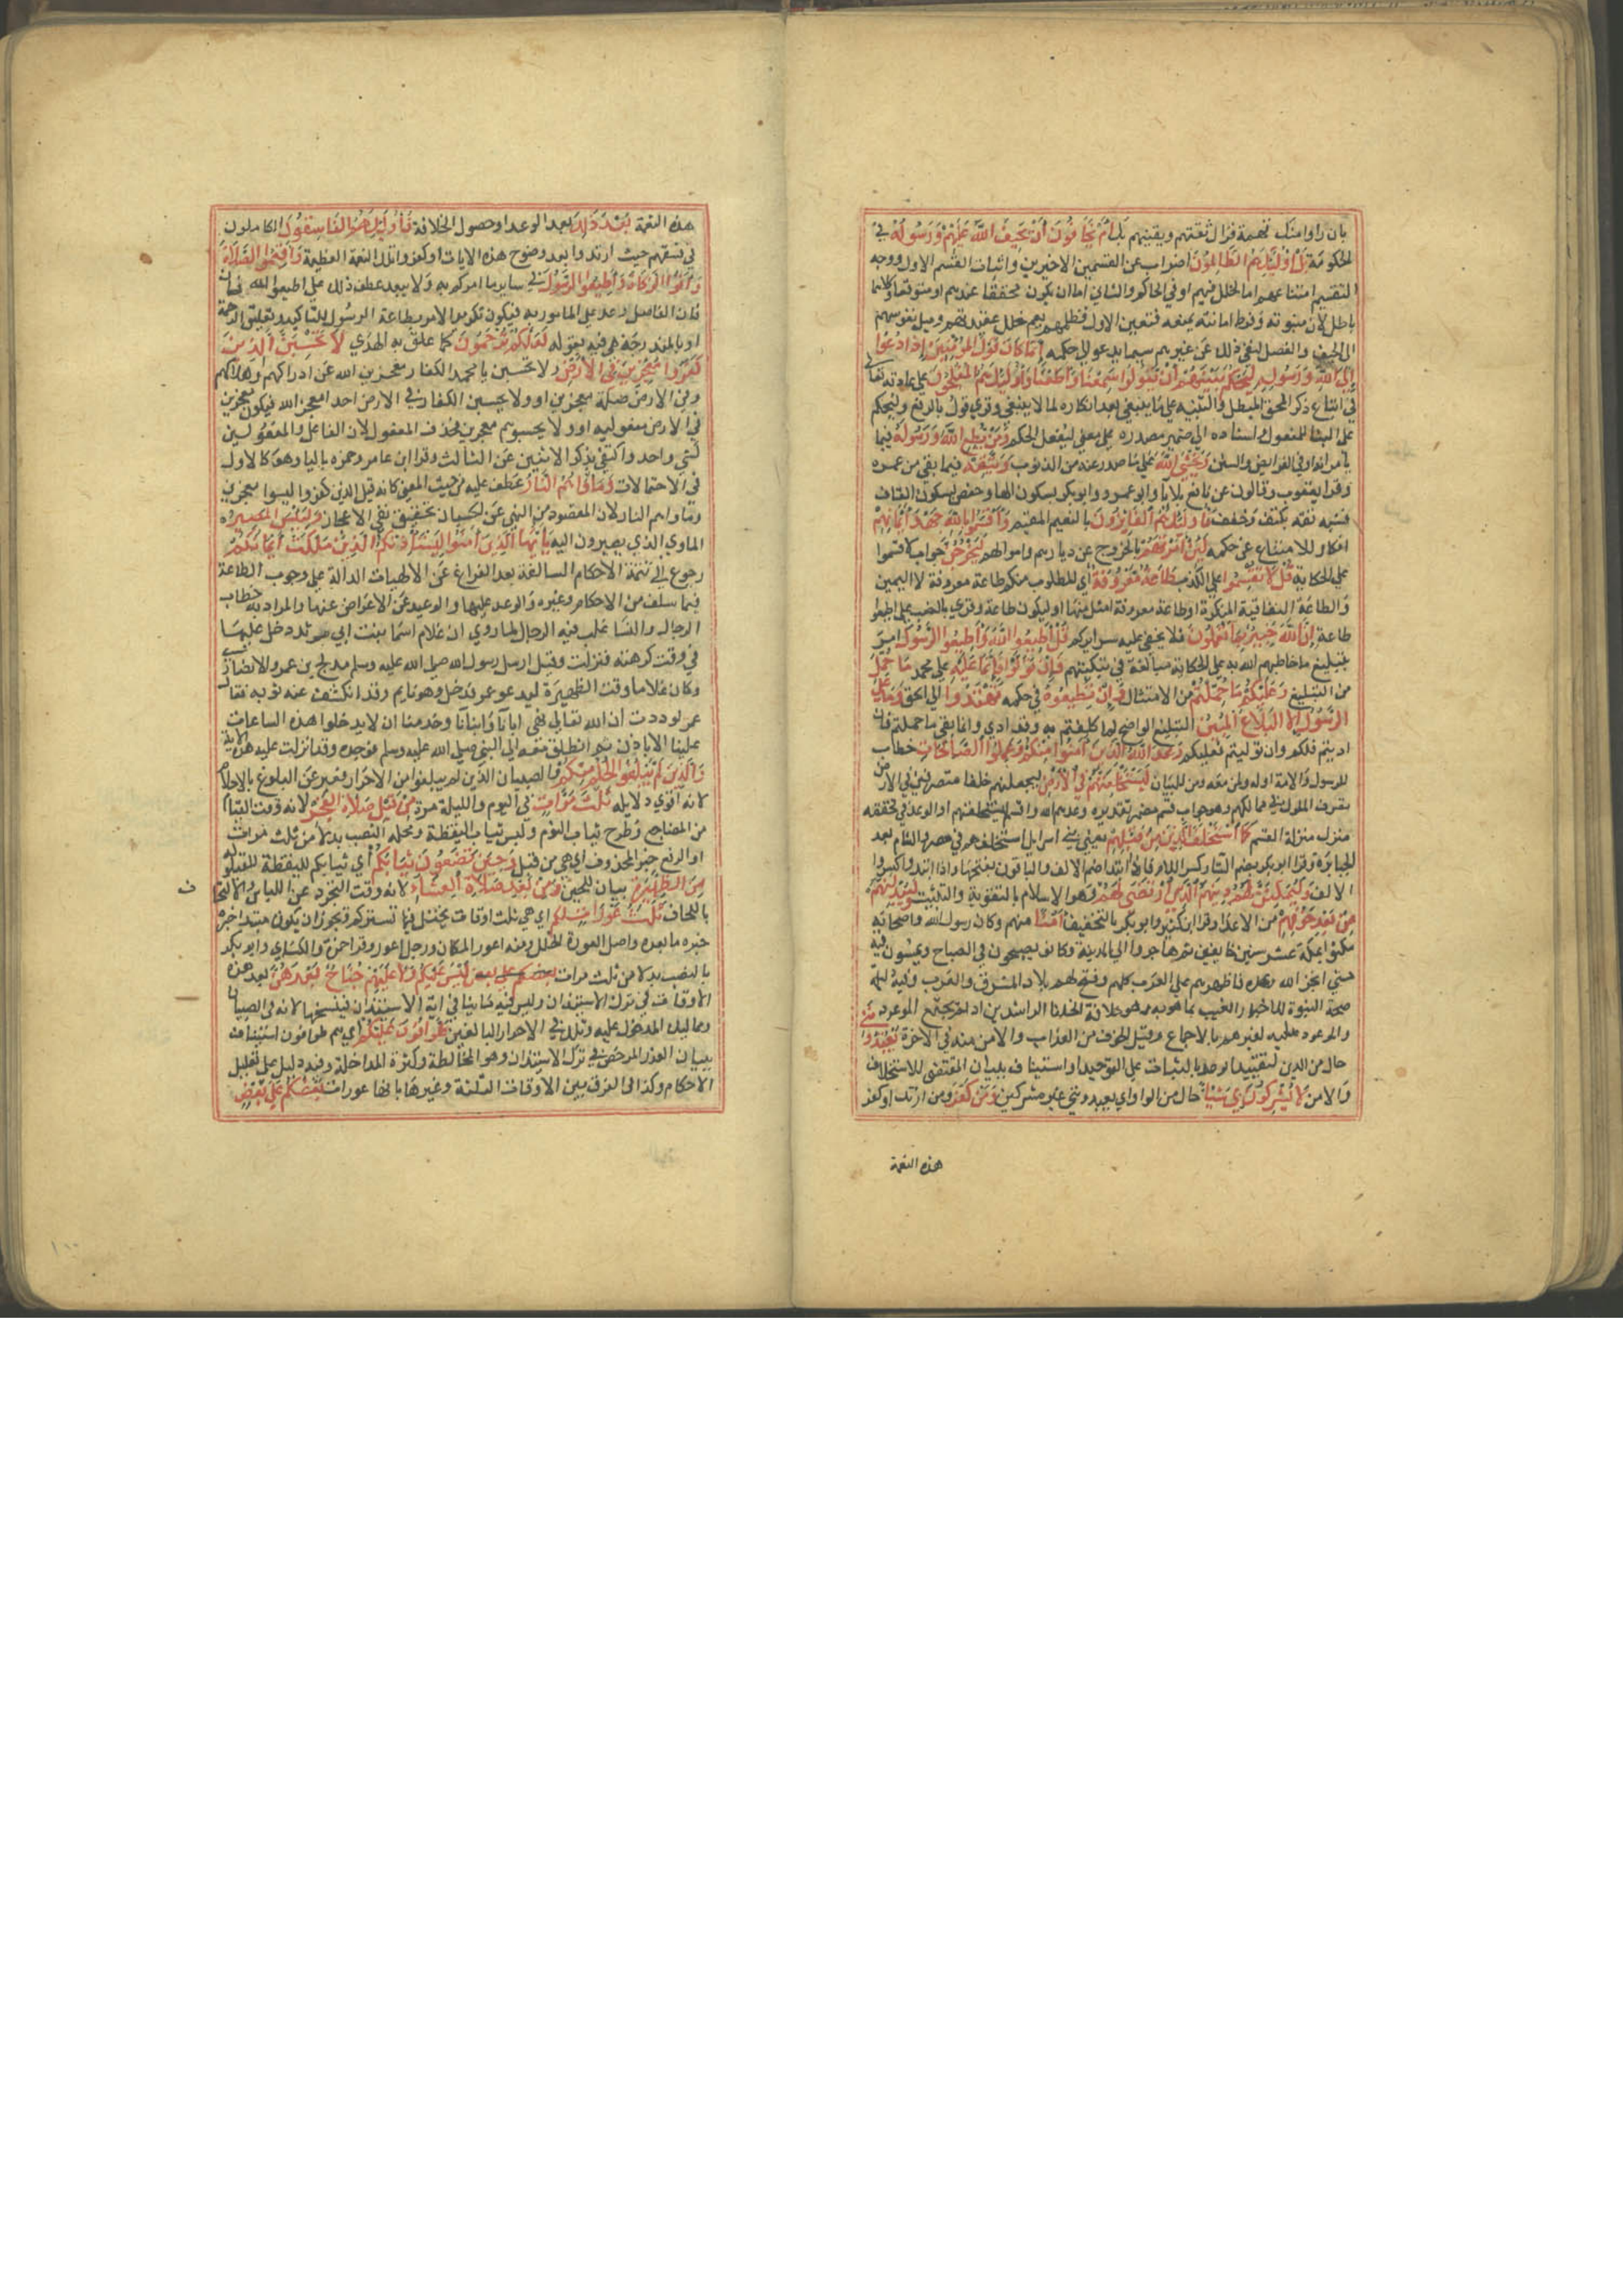 بان راوا منك تهمة فزال ثقتهم ويقينهم بك أم يخافون أن يحيف الله عليهم ورسوله في
الحكومة بل أولئك هم الظالمون اضراب عن القسمين الاخيرين واثبات القسم الاول ووجه
التقسيم امتناعهم اما لخلل فيهم او في الحاكم والثاني اما ان يكون محققا عندهم او متوقعا وكلاهما
باطل لان منبوته وفرط امانته يمنعه فتعين الاول فظلمهم يعم خلل عقيدتهم وميل نفوسهم
الى الحيف والفصل لنفي ذلك عن غيرهم سيما يدعو الى حكمه إنما كان قول المؤمنين إذا دعوا
إلى الله ورسوله ليحكم بينهم أن يقولوا سمعنا وأطعنا وأولئك هم المفلحون على عادته تعالى
في اتباع ذكر المحق المبطل والتنبيه على ما ينبغي بعد انكاره لما لا ينبغي وقري قول بالرفع وليحكم
على البنا للمفعول واسناده الى ضمير مصدره على معنى ليفعل الحكم ومن يطع الله ورسوله فيما
يامرانه او في الفرايض والسنن ويخشى الله على ما صدر عنه من الذنوب ويتقه فيما بقي من عمره
وقرا يعقوب وقالون عن نافع بلا يا وابو عمرو وابو بكر بسكون الها وحفص بسكون القاف
فشبه تقه بكتف وخفف فأولئك هم الفائزون بالنعيم المقيم وأقسموا بالله جهد أيمانهم
انكار للامتناع عن حكمه لئن أمرتهم بالخروج عن ديارهم واموالهم ليخرجن جواب لاقسموا
على الحكاية قل لا تقسموا على الكذب طاعة معروفة اي المطلوب منكم طاعة معروفة لا اليمين
والطاعة النفاقية المنكرة او طاعة معروفة امثل منها او ليكون طاعة وقري بالنصب على اطيعوا
طاعة إن الله خبير بما تعملون فلا يخفى عليه سرايركم قل أطيعوا الله وأطيعوا الرسول امر
بتبليغ ما خاطبهم الله به على الحكاية مبالغة في تبكيتهم فإن تولوا فإنما عليه على محمد ما حمل
من التبليغ وعليكم ما حملتم من الامتثال وإن تطيعوه في حكمه تهتدوا الى الحق وما على
الرسول إلا البلاغ المبين التبليغ الواضح لما كلفتم به وقد ادى وانما بقي ما حملتم فان
اديتم فلكم وان توليتم فعليكم وعد الله الذين آمنوا منكم وعملوا الصالحات خطاب
للرسول والامة او له ولمن معه ومن للبيان ليستخلفنهم في الأرض ليجعلنهم خلفا متصرفين في الارض
تصرف الملوك في مماليكهم وهو جواب قسم مضمر تقديره وعدهم الله واقسم ليستخلفنهم او الوعد في تحققه
منزل منزلة القسم كما استخلف الذين من قبلهم يعني بني اسرايل استخلفهم في مصر والشام بعد
الجبابرة وقرا ابو بكر بضم التا وكسر اللام واذا ابتدا ضم الالف والباقون بفتحها واذا ابتدوا كسروا
الالف وليمكنن لهم دينهم الذي ارتضى لهم وهو الاسلام بالتقوية والتثبيت وليبدلنهم
من بعد خوفهم من الاعدا وقرا ابن كثير وابو بكر بالتخفيف أمنا منهم وكان رسول الله واصحابه
مكثوا بمكة عشر سنين خايفين ثم هاجروا الى المدينة وكانوا يصبحون في الصباح ويمسون فيه
حتى انجز الله وعده فاظهرهم على العرب كلهم وفتح لهم بلاد المشرق والمغرب وفيه دليل
صحة النبوة للاخبار الغيب بما هو به وخلافة الخلفا الراشدين اذ لم يجتمع الموعود
والموعود عليه لغيرهم بالاجماع وقيل الخوف من العذاب والامن منه في الاخرة يعبدونني
حال من الذين لتقييد الوعد بالثبات على التوحيد او استيناف ببيان المقتضي للاستخلاف
والامن لا يشركون بي شيئا حال من الواو اي يعبدونني غير مشركين ومن كفر ومن ارتد او كفر
هذه النعمة
هذه النعمة بعد ذلك بعد الوعد او حصول الخلافة فأولئك هم الفاسقون الكاملون
في فسقهم حيث ارتدوا بعد وضوح هذه الايات او كفروا تلك النعمة العظيمة وأقيموا الصلاة
وآتوا الزكاة وأطيعوا الرسول في ساير ما امركم به ولا يبعد عطف ذلك على اطيعوا الله فان
فان الفاصل وعد على المامور به فيكون تكرير الامر بطاعة الرسول للتاكيد وتعليق الرحمة
او بالمندرجة هي فيه بقوله لعلكم ترحمون كما علق به الهدى لا تحسبن الذين
كفروا معجزين في الأرض ولا تحسبن يا محمد الكفار معجزين الله عن ادراكهم واهلاكهم
وفي الارض صلة معجزين او ولا يحسبن الكفار في الارض احدا معجز الله فيكون معجزين
في الارض مفعوليه او ولا يحسبوهم معجزين فحذف المفعول لان الفاعل والمفعولين
لشي واحد واكتفي بذكر الاثنين عن الثالث وقرا ابن عامر وحمزه باليا وهو كالاول
في الاحتمالات ومأواهم النار عطف عليه من حيث المعنى كانه قيل الذين كفروا ليسوا بمعجزين
وماواهم النار لان المقصود من النهي عن الحسبان تحقيق نفي الاعجاز ولبئس المصير
الماوى الذي يصيرون اليه يا أيها الذين آمنوا ليستأذنكم الذين ملكت أيمانكم
رجوع الى تتمة الاحكام السالفة بعد الفراغ عن الالهيات الدالة على وجوب الطاعة
فيما سلف من الاحكام وغيره والوعد عليها والوعيد عن الاعراض عنها والمراد به خطاب
الرجال والنسا غلب فيه الرجال لما روي ان غلام اسما بنت ابي مرثد دخل عليها
في وقت كرهته فنزلت وقيل ارسل رسول الله صلى الله عليه وسلم مدلج بن عمرو الانصاري
وكان غلاما وقت الظهيرة ليدعو عمر فدخل وهو نايم وقد انكشف عنه ثوبه فقال
عمر لوددت ان الله تعالى نهى اباءنا وابناءنا وخدمنا ان لا يدخلوا هذه الساعات
علينا الا باذن ثم انطلق معه الى النبي صلى الله عليه وسلم فوجده وقد انزلت عليه هذه الاية
والذين لم يبلغوا الحلم منكم والصبيان الذين لم يبلغوا من الاحرار فعبر عن البلوغ بالاحتلام
لانه اقوى دلايله ثلث مرات في اليوم والليلة مرة من قبل صلاة الفجر لانه وقت القيام
من المضاجع وطرح ثياب النوم ولبس ثياب اليقظة ومحله النصب بدلا من ثلث مرات
او الرفع خبر المحذوف اي هي من قبل وحين تضعون ثيابكم اي ثيابكم لليقظة للقيلولة
من الظهيرة بيان للحين ومن بعد صلاة العشاء لانه وقت التجرد عن اللباس والالتحاف
بالحاف ثلث عورات لكم اي هي ثلث اوقات يختل فيها تستركم ويجوز ان يكون مبتدا خبره
خبره ما بعده واصل العورة الخلل ومنه اعور المكان ورجل اعور وقرا حمزة والكسائي وابو بكر
بالنصب بدلا من ثلث مرات ليس عليكم ولا عليهم جناح بعدهن بعد هذه
الاوقات في ترك الاستيذان وليس فيه ما ينافي اية الاستيذان فينسخها لانه في الصبيان
ومماليك المدخول عليه وتلك في الاحرار البالغين طوافون عليكم اي هم طوافون استيناف
ببيان العذر المرخص في ترك الاستيذان وهو المخالطة وكثرة المداخلة وفيه دليل على تعليل
الاحكام وكذا في الفرق بين الاوقات الثلثة وغيرها بانها عورات بعضكم على بعض